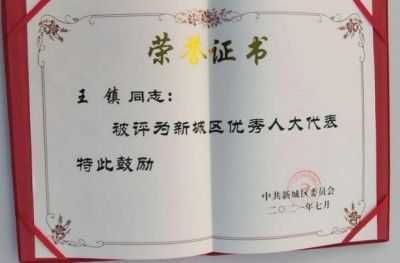 荣誉证书
王 镇 同志：
被评为新城区优秀人大代表
特此鼓励
中共新城区委员会
二〇二一年七月